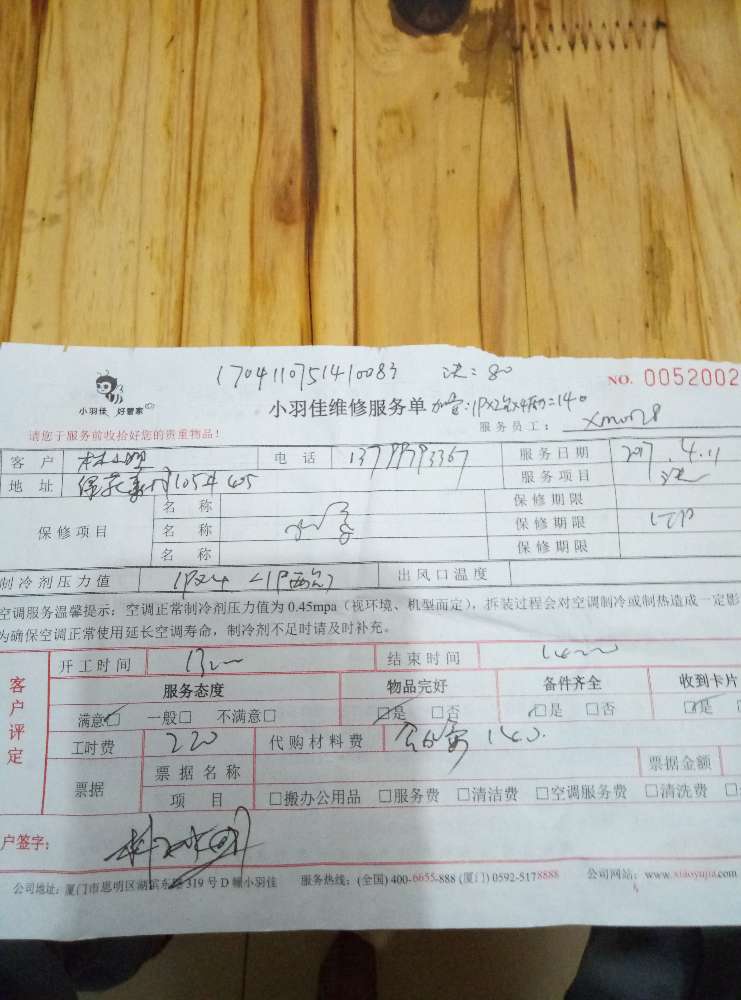 1704110751410083 洗：80
NO. 0052002
小羽佳 好管家
小羽佳维修服务单 1P×2台×4=140
请您于服务前收拾好您的贵重物品！
服务员工： xm028
客 户 电 话 13799793367 服务日期 2017.4.11
地 址 105# 405 服务项目 洗
保修项目 名 称 保修期限
名 称 保修期限
名 称 保修期限
制冷剂压力值 出风口温度
空调服务温馨提示：空调正常制冷剂压力值为 0.45mpa（视环境、机型而定），拆装过程会对空调制冷或制热造成一定影
为确保空调正常使用延长空调寿命，制冷剂不足时请及时补充。
客户评定
开工时间 结束时间
服务态度 物品完好 备件齐全 收到卡片
满意□ 一般□ 不满意□ □是 □否 □是 □否 □是
工时费 220 代购材料费 140.
票据 票据名称 票据金额
项 目 □搬办公用品 □服务费 □清洁费 □空调服务费 □清洗费
户签字：
公司地址：厦门市思明区湖滨东路 319 号 D 幢小羽佳 服务热线：(全国) 400-6655-888 (厦门) 0592-5178888 公司网站：www.xiaoyujia.com